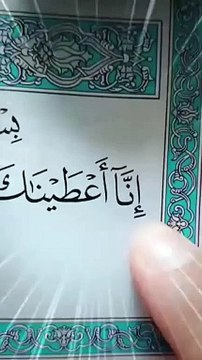 بِسْ
إِنَّآ أَعْطَيْنَٰكَ